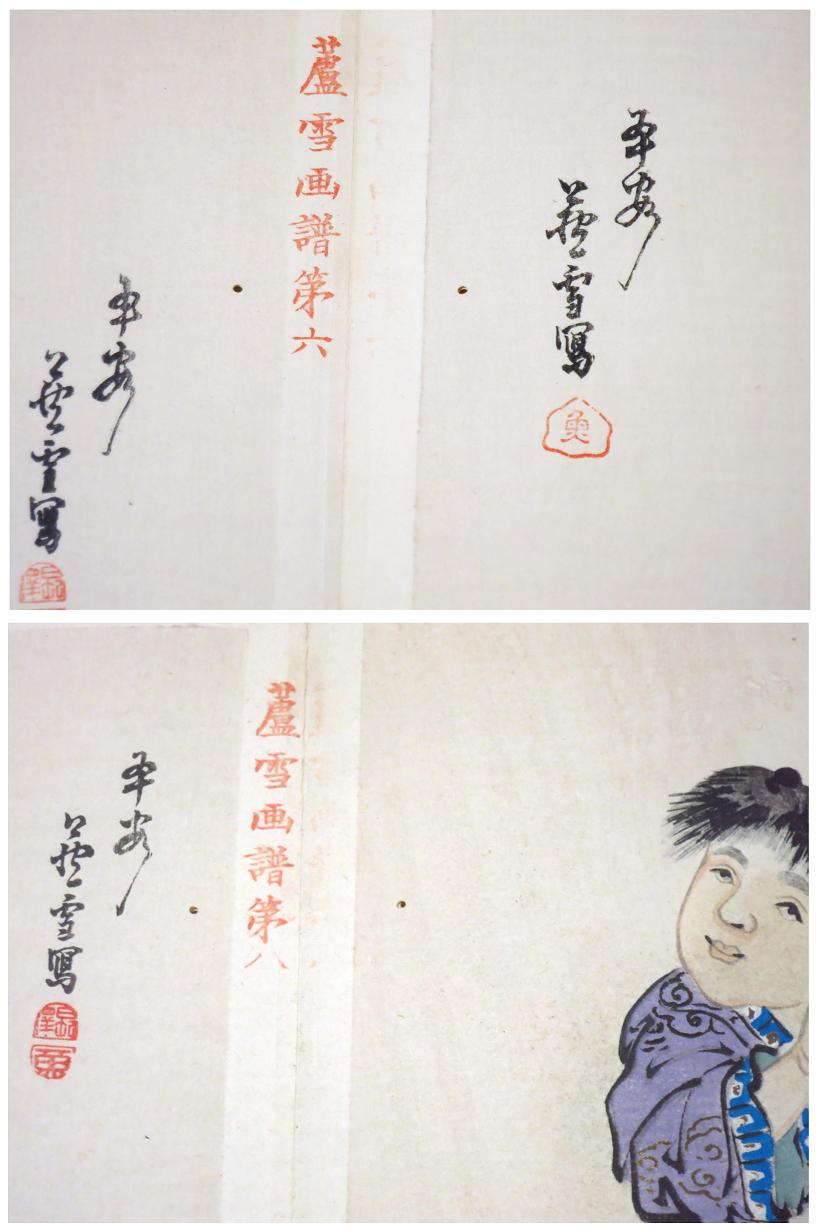 平安
蘆雪寫
魚
蘆雪画譜第六
平安
蘆雪寫
蘆雪画譜第八
平安
蘆雪寫